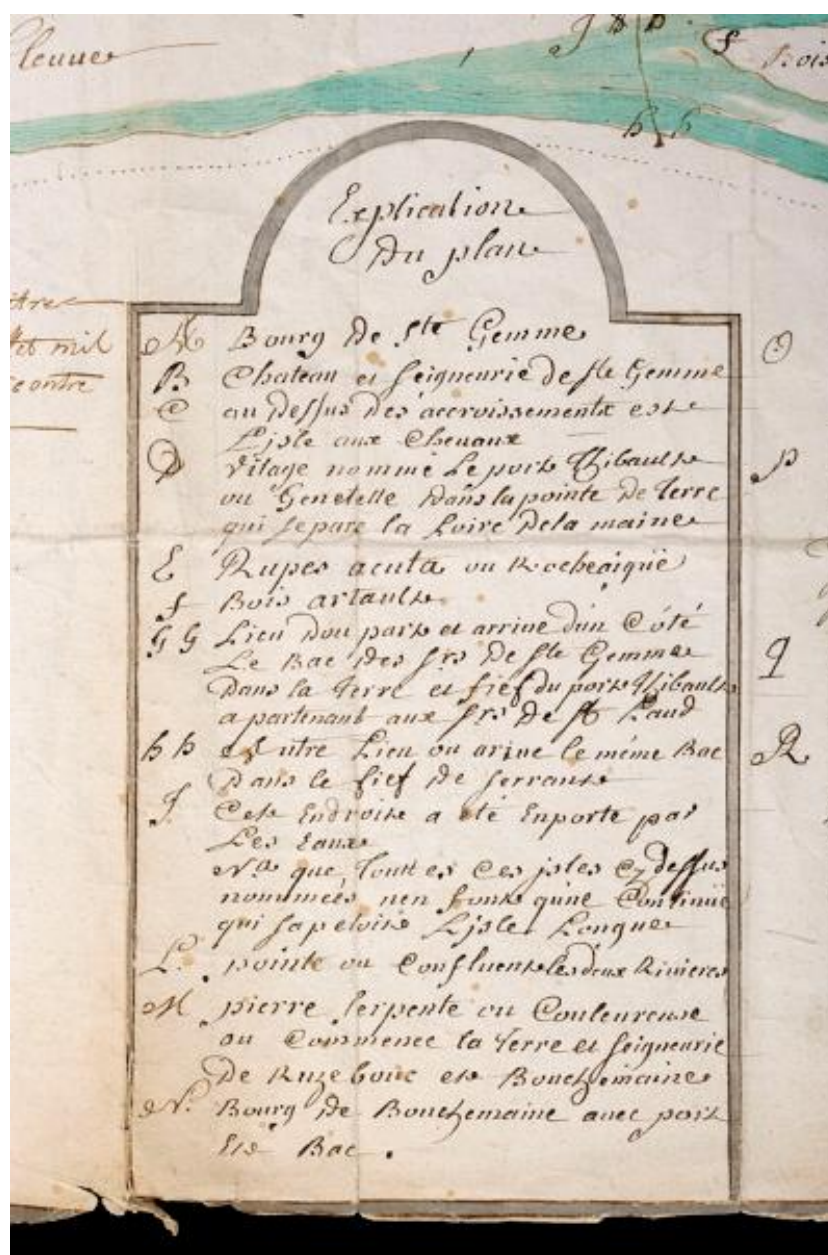 fleuue
g h h.
f
Bois
h h
Explication
Du plan
mil
contre
A Bourg De Ste Gemme
B Chateau et seigneurie de ste Gemme
C au Dessus Des accroissements est
L'isle aux Cheuaux
D Vilage nommé Le port Thibault
ou Genetelle Dans la pointe De terre
qui separe la Loire Dela maine
E Rupes acuta ou Rocheaigüe
f Bois artault
G G Lieu Dou part et arriue Dun Côté
Le Bac Des srs De ste Gemme
Dans la terre et fief du port Thibault
apartenant aux srs De st Laud
h h autre Lieu ou ariue le méme Bac
Dans le fief De serrant
J Cet Endroit a été Enporté par
Les Eaux
Na que touttes Ces isles Cy dessus
nommeés nen font qune Continüe
qui sapeloit L'isle Longue
L. pointe ou Confluent les deux Rivieres
M pierre serpente ou Couleureuse
ou Commence la terre et seigneurie
De Ruzebouc et Bouchemaine
N. Bourg De Bouchemaine auec port
Et Bac.
O
P
Q
R